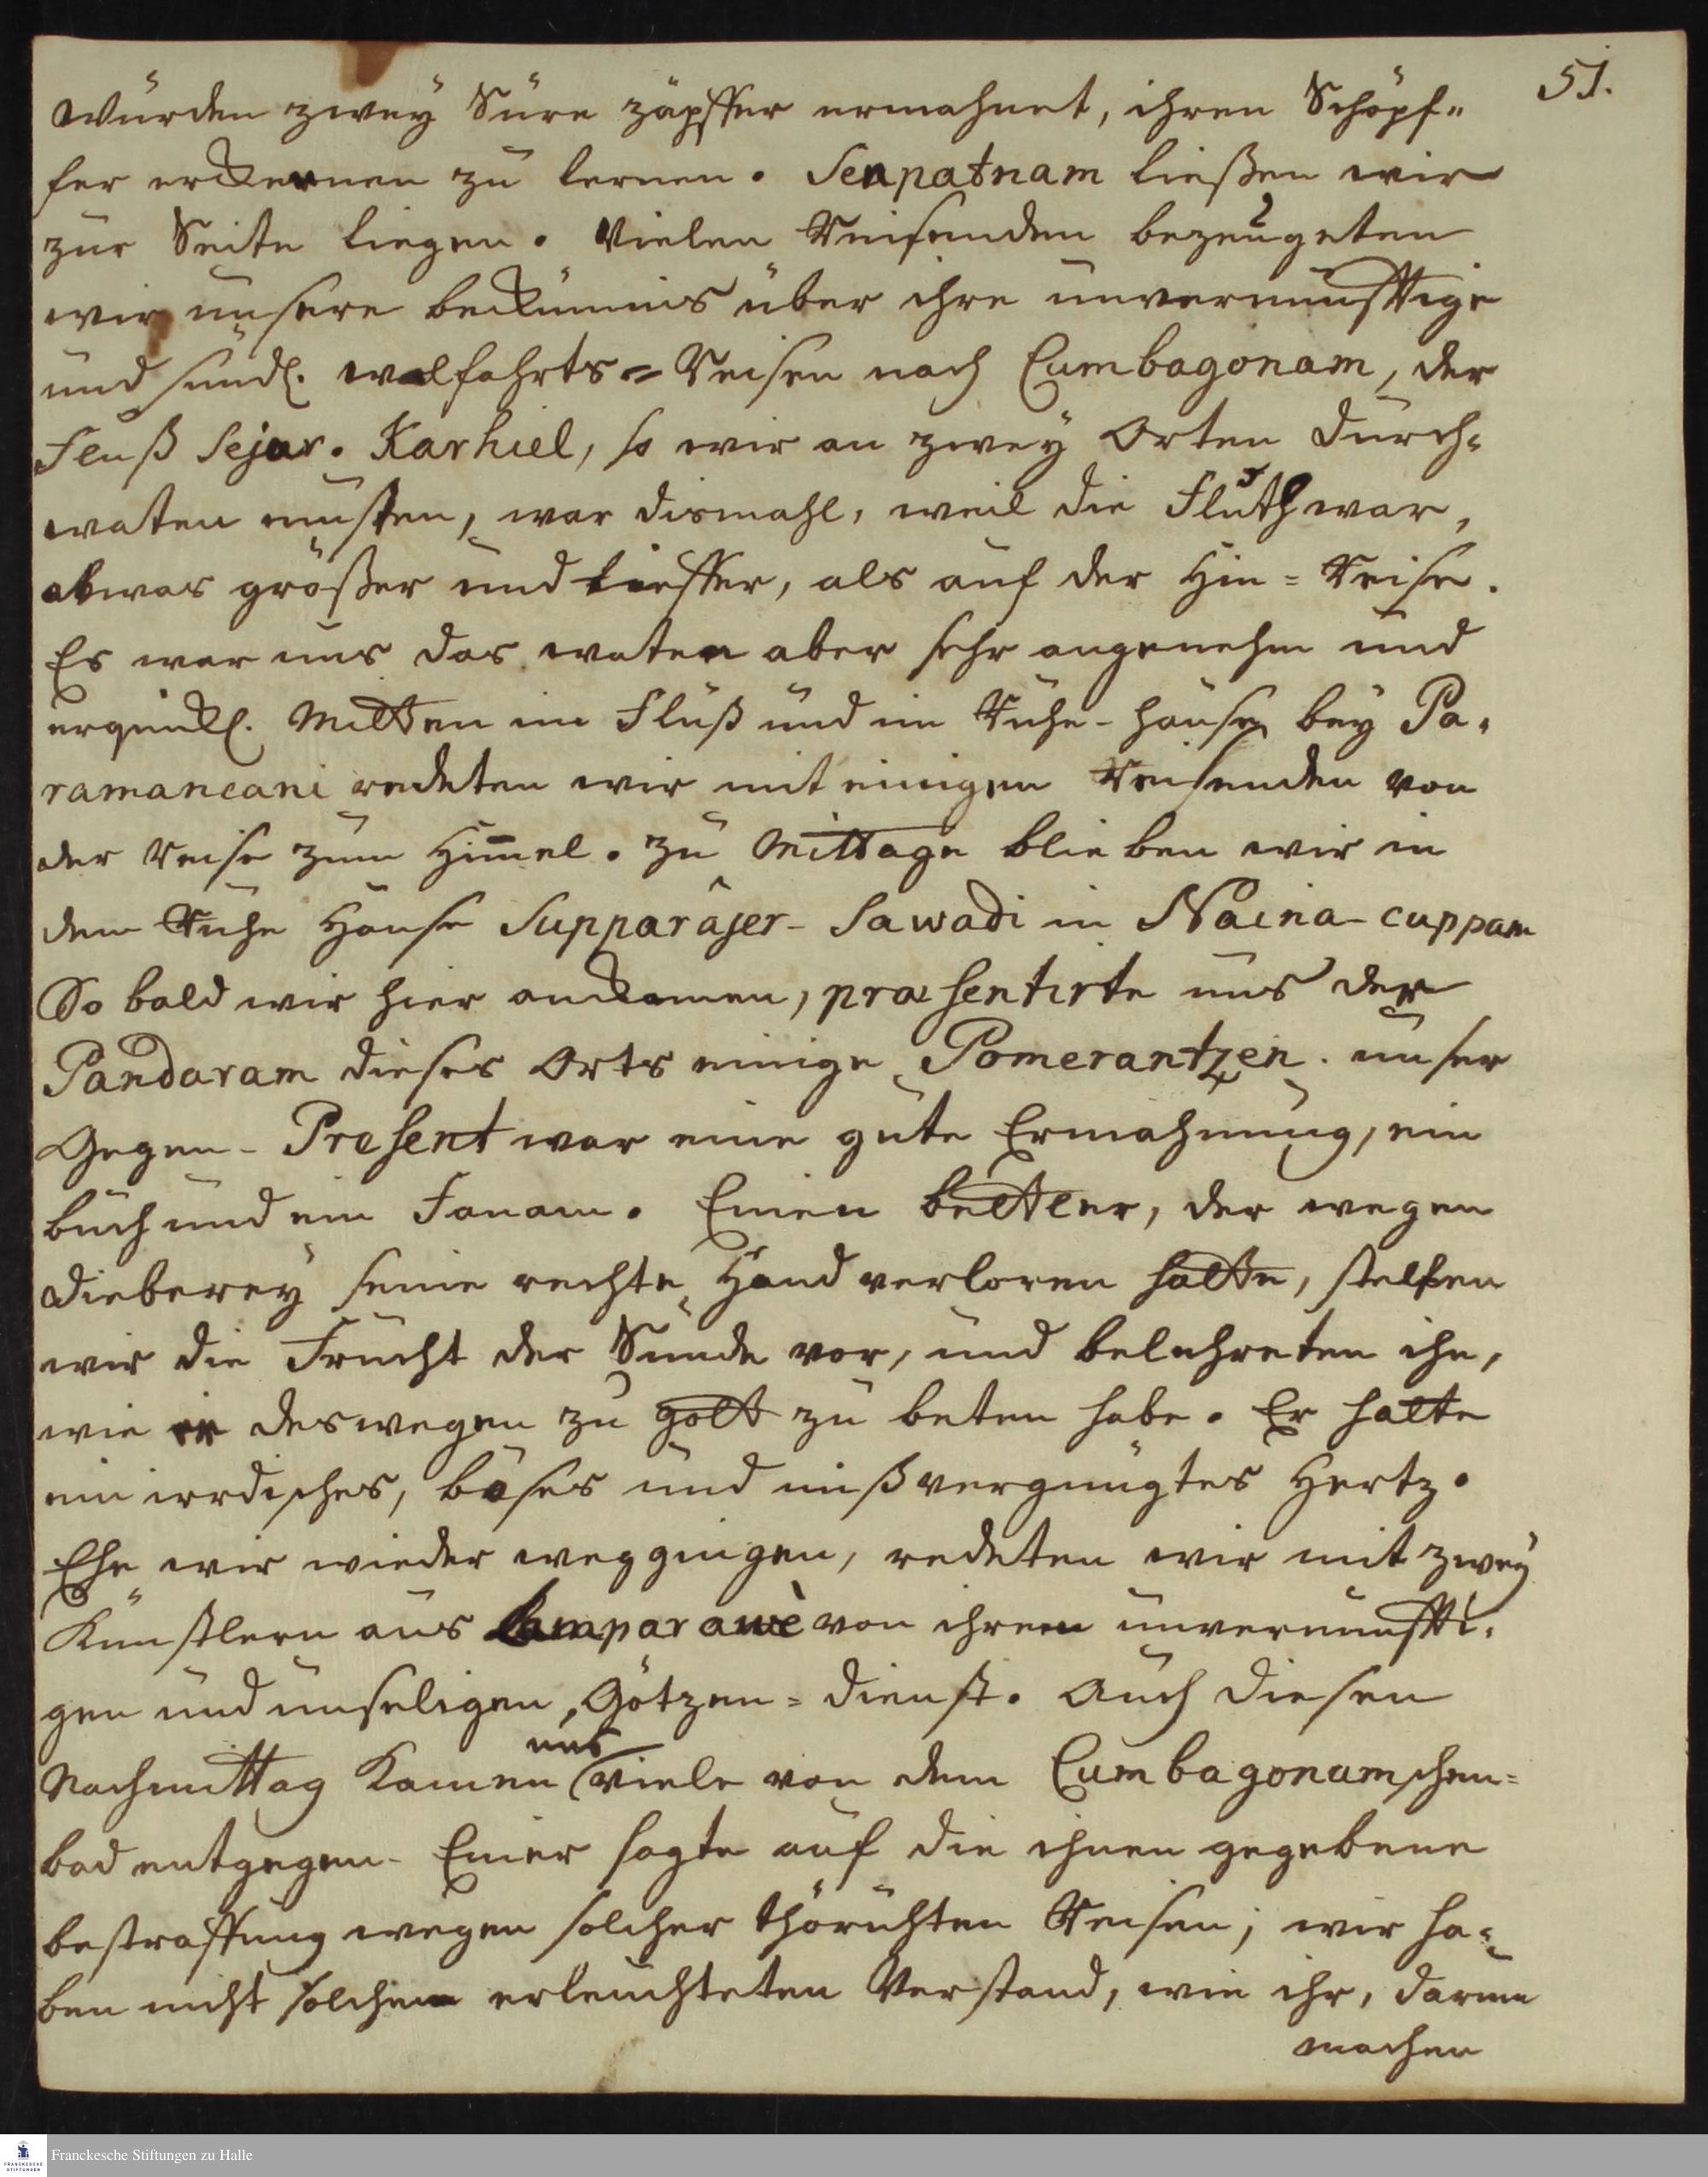 51.
wurden zwey Sure zäpffer ermahnet, ihren Schöpf-
fer erkennen zu lernen. Senpatnam ließen wir
zur Seite liegen. Vielen Reisenden bezeugeten
wir unsere bekümnis über ihre unvernunfftige
und sündl. walfahrts-Reisen nach Cumbagonam, der
Fluß Sejar. Karhiel, so wir an zwey Orten durch-
waten musten, war dismahl, weil die Fluth war,
etwas größer und tieffer, als auf der Hin-Reise.
Es war uns das waten aber sehr angenehm und
erquickl. Mitten im Fluß und im Ruhe-Hause bey Pa-
ramancani redeten wir mit einigen Reisenden von
der Reise zum Him̄el. Zu Mittage blieben wir in
dem Ruhe Hause Supparâjer-Sawadi in Naina-cuppam
So bald wir hier ankamen, præsentirte uns der
Pandaram dieses Orts einige Pomerantzen. unser
Gegen-Present war eine gute Ermahnung, ein
buch und ein Fanam. Einen bettler, der wegen
Dieberey seine rechte Hand verloren hatte, stelten
wir die Frucht der Sünde vor, und belehreten ihn,
wie er deswegen zu Gott zu beten habe. Er hatte
ein irrdisches, böses und mißvergnügtes Hertz.
Ehe wir wieder weggingen, redeten wir mit zwey
Künstlern aus Lamparawè von ihrem unvernunffti-
gen und unseligen Götzen-dienst. Auch diesen
Nachmittag kamen uns viele von dem Cumbagonamschen-
bad entgegen. Einer sagte auf die ihnen gegebene
bestraffung wegen solcher thörichten Reisen; wir ha-
ben nicht solchen erleuchteten Verstand, wie ihr, darum
machen
Franckesche Stiftungen zu Halle